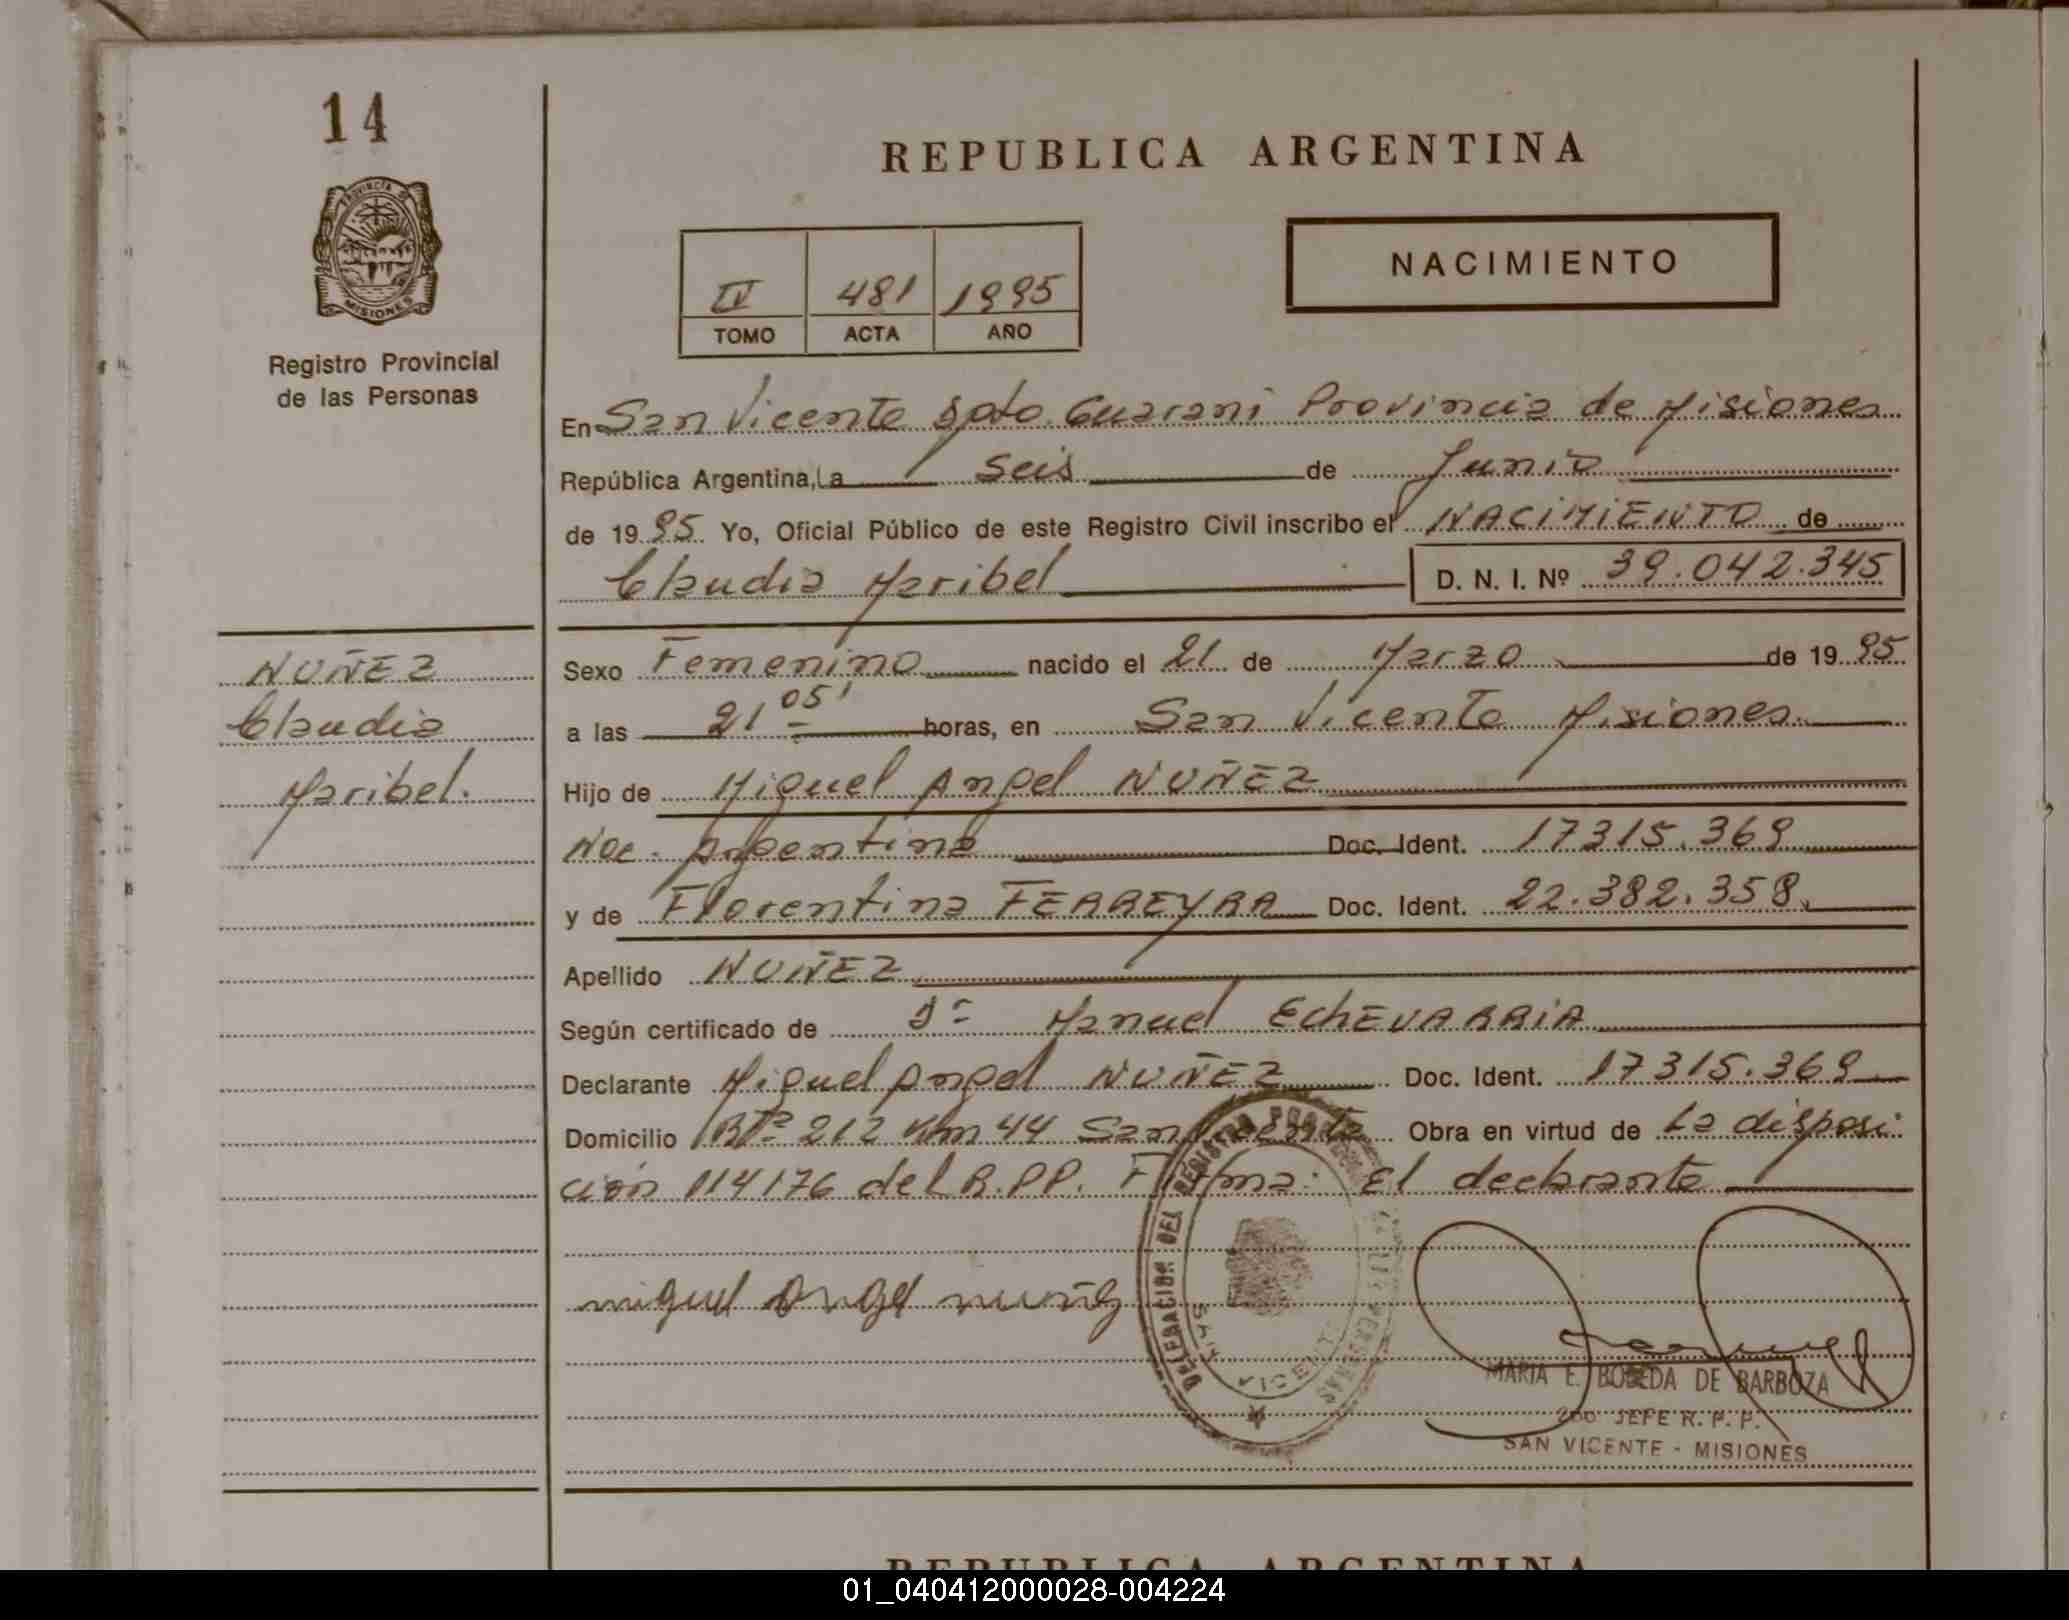 14
REPUBLICA ARGENTINA
PROVINCIA DE
MISIONES
Registro Provincial
de las Personas
NACIMIENTO
IV 481 1995
TOMO ACTA AÑO
En San Vicente Dpto. Guarani Provincia de Misiones
República Argentina, a seis de Junio
de 1995 Yo, Oficial Público de este Registro Civil inscribo el NACIMIENTO de
Claudia Maribel D. N. I. Nº 39.042.345
NUÑEZ
Claudia
Maribel.
Sexo Femenino nacido el 21 de Marzo de 1995
a las 21 05' horas, en San Vicente Misiones
Hijo de Miguel Angel NUÑEZ
Nac. Argentina Doc. Ident. 17315.369
y de Florentina FERREYRA Doc. Ident. 22.382.358
Apellido NUÑEZ
Según certificado de Dr Manuel EchEVARRIA
Declarante Miguel Angel NUÑEZ Doc. Ident. 17315.369
Domicilio Rta 212 Km 44 San Vicente Obra en virtud de La disposi
ción 114176 del R.P.P. Firma: El declarante
miguel Angel nuñez
DELEGACION DEL REGISTRO PROVINCIAL DE LAS PERSONAS
SAN VICENTE
MARIA E. BOBEDA DE BARBOZA
2do JEFE R. P. P.
SAN VICENTE - MISIONES
REPUBLICA ARGENTINA
01_040412000028-004224